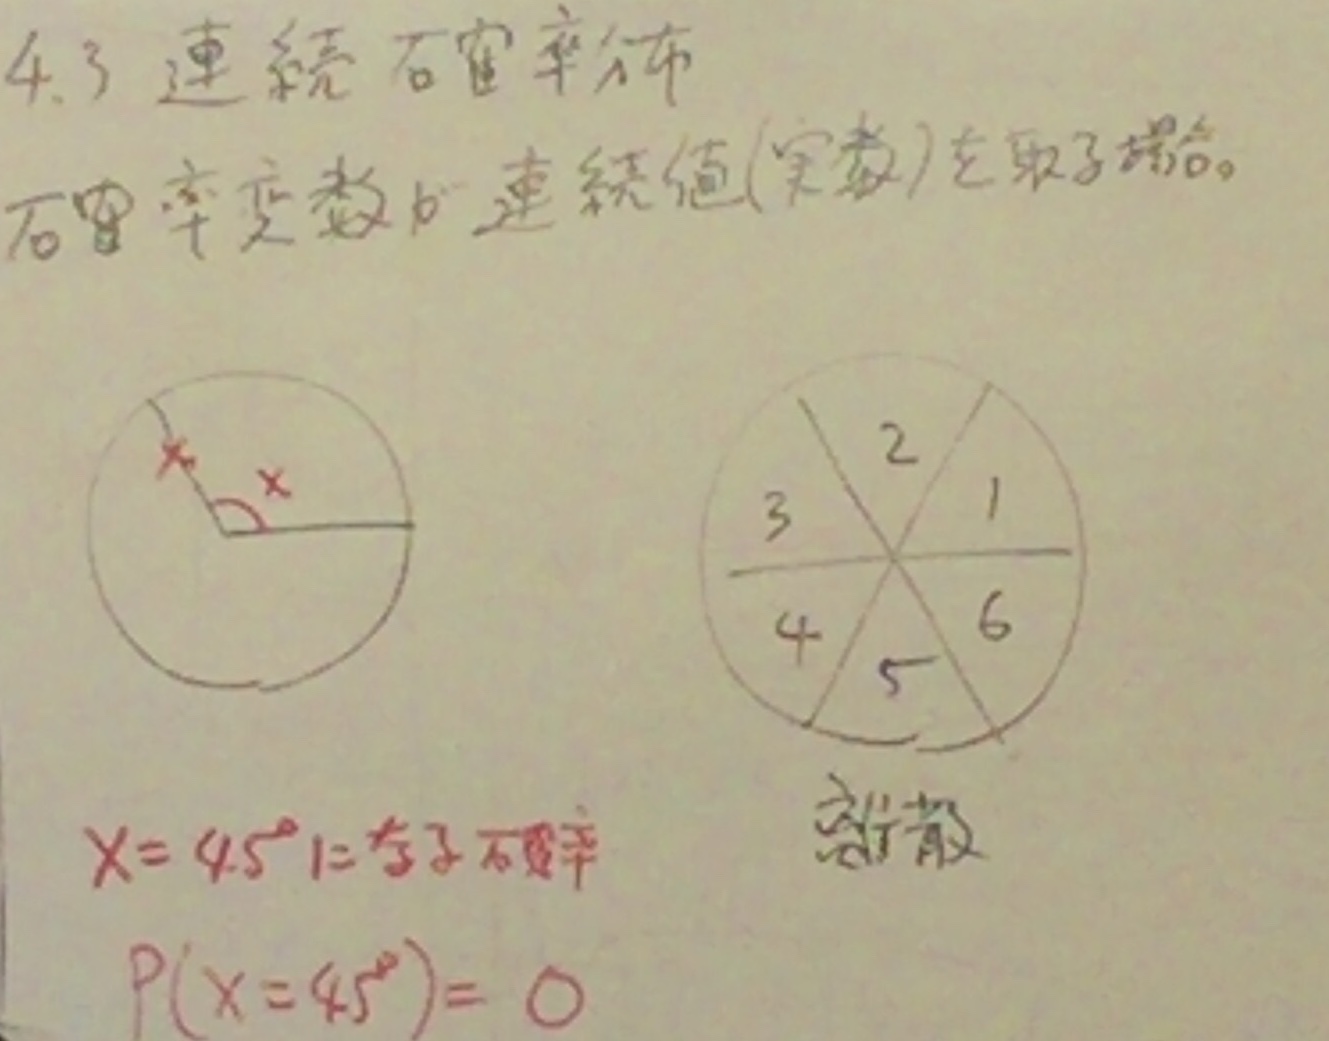 4.3 連続確率分布
確率変数が連続値(実数)を取る場合。
x
x
2
1
3
4
5
6
離散
X=45°になる確率
P(X=45°)=0